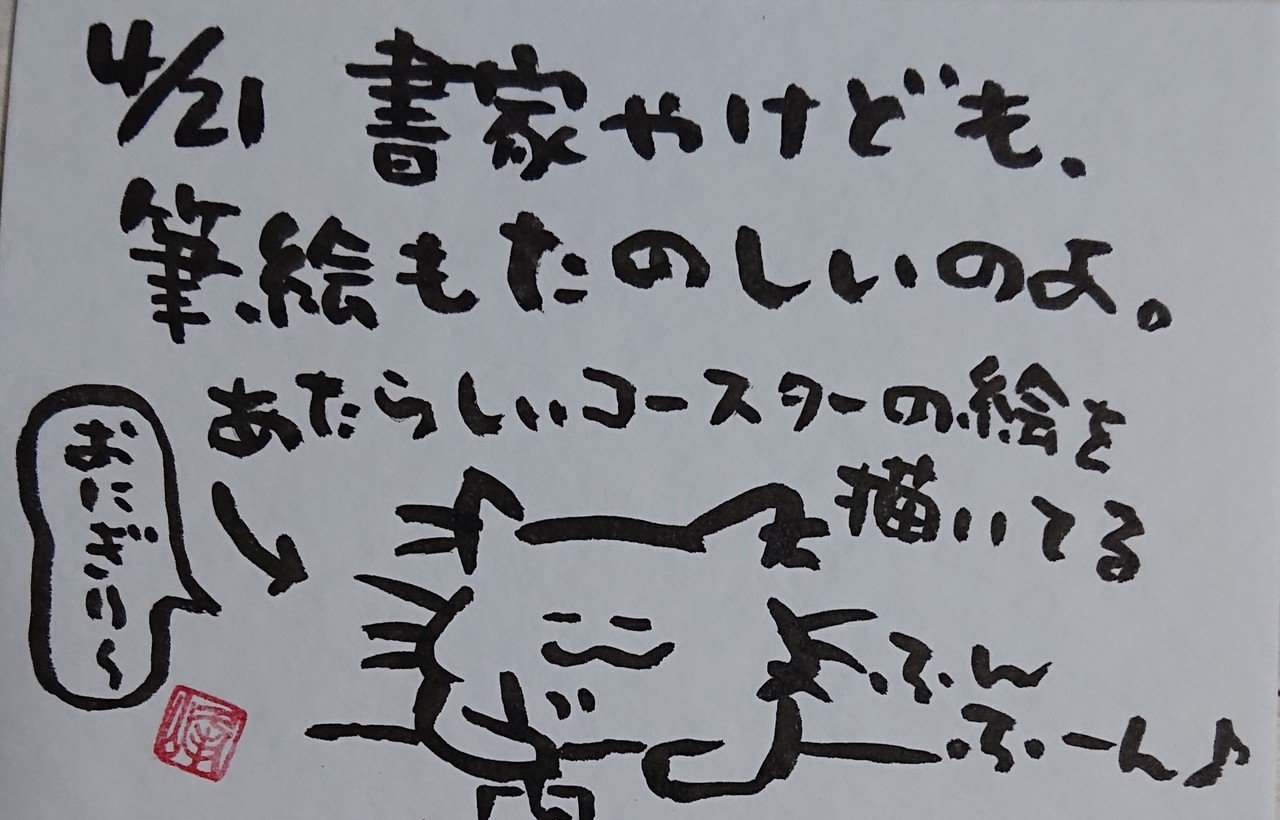 4/21 書家やけども、
筆絵もたのしいのよ。
あたらしいコースターの絵を
描いてる
おにぎり〜
ふん
ふーん♪